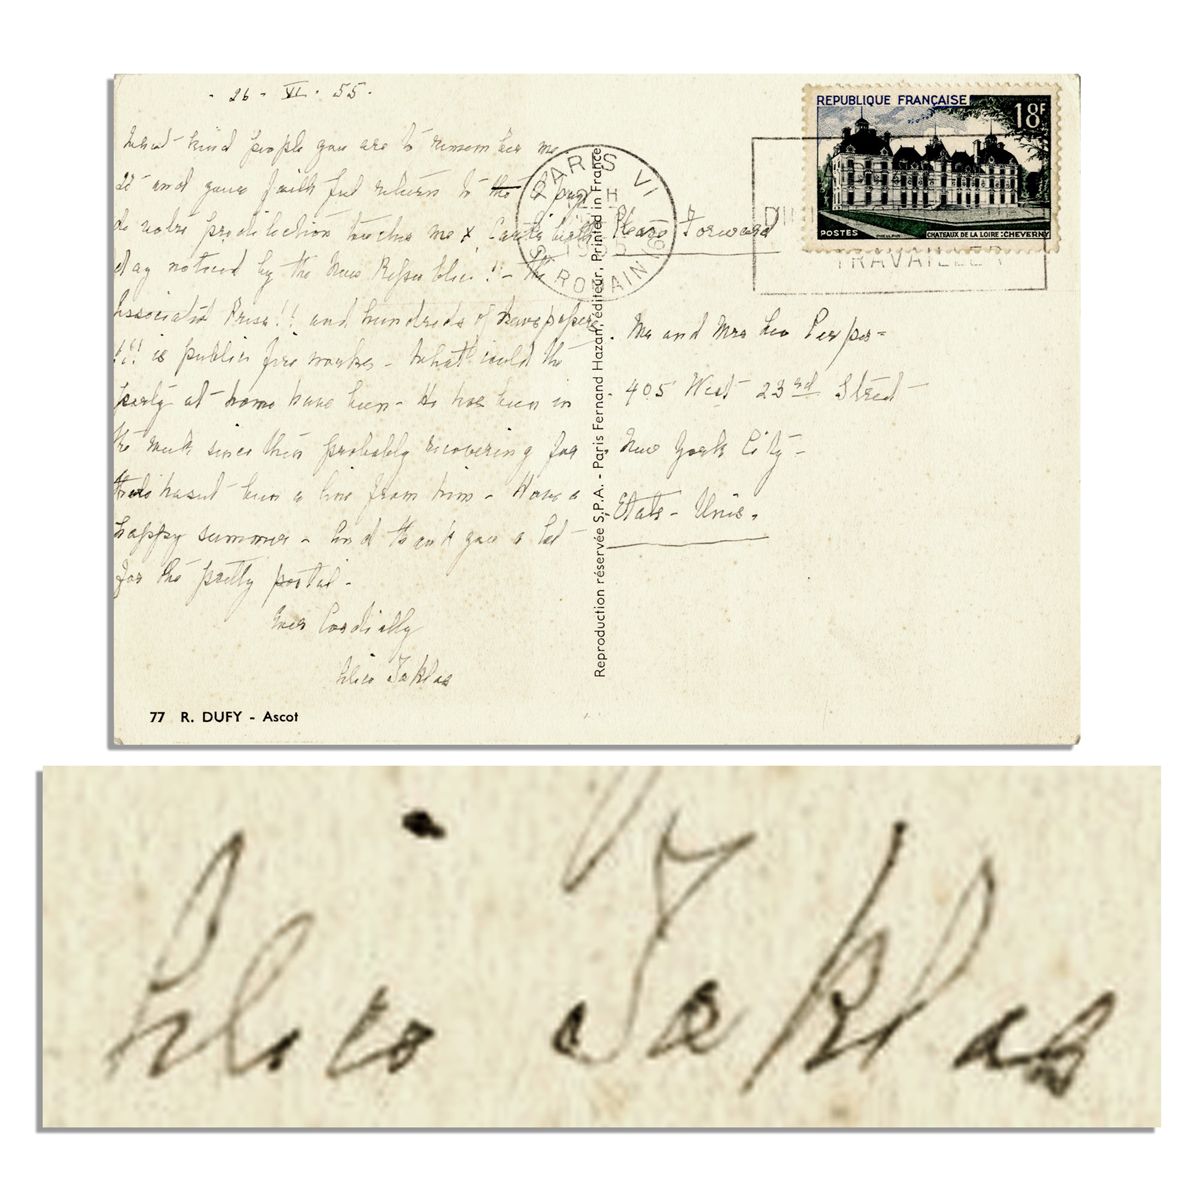 - 26 - VI. 55 -
What kind people you are to remember me
and your faithful return to the
me & Carl's birth-
day noticed by the New Republic!! - The
Associated Press!! and hundreds of newspapers
!!! is public fire works - What could the
party at home have been - He has been in
the since then probably recovering for
there hasn't been a line from him - Have a
happy summer - And thank you a lot
for the pretty postal -
Cordially
Alice Toklas
77 R. DUFY - Ascot
Reproduction réservée S.P.A. - Paris Fernand Hazan, éditeur. Printed in France
PARIS VI
12 H
1955
R. ST ROMAIN (6e)
TRAVAILLER
REPUBLIQUE FRANÇAISE
18F
POSTES
CHATEAUX DE LA LOIRE : CHEVERNY
Please Forward
Mr and Mrs Leo
405 West 23rd Street
New York City -
Etats - Unis.
Alice Toklas